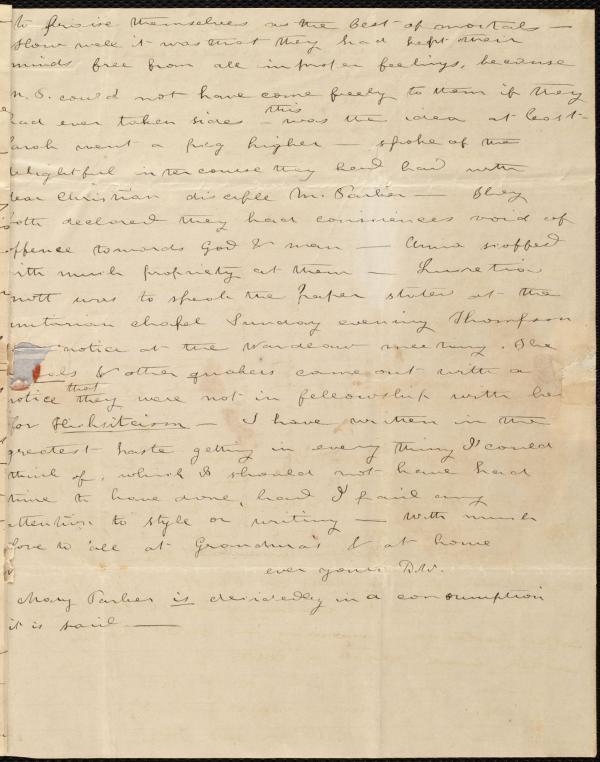 to praise themselves as the best of mortals —
How well it was that they had kept their
minds free from all improper feelings, because
N. P. could not have come freely to them if they
had ever taken sides — this was the idea at least —
Sarah went a peg higher — spoke of the
delightful intercourse they had had with
dear Christian disciple Mr. Parker — They
both declared they had consciences void of
offence towards God & man — Anna scoffed
with much propriety at them — Lucretia
Mott was to speak the paper states at the
unitarian chapel Sunday evening Thompson
notice at the meeting. The
& other quakers came out with a
notice that they were not in fellowship with her
for Hicksiteism — I have written in the
greatest haste getting in every thing I could
think of, which I should not have had
time to have done, had I paid any
attention to style or writing — With much
love to all at Grandma's & at home
ever yours D.W.
Mary Parker is decidedly in a consumption
it is said —